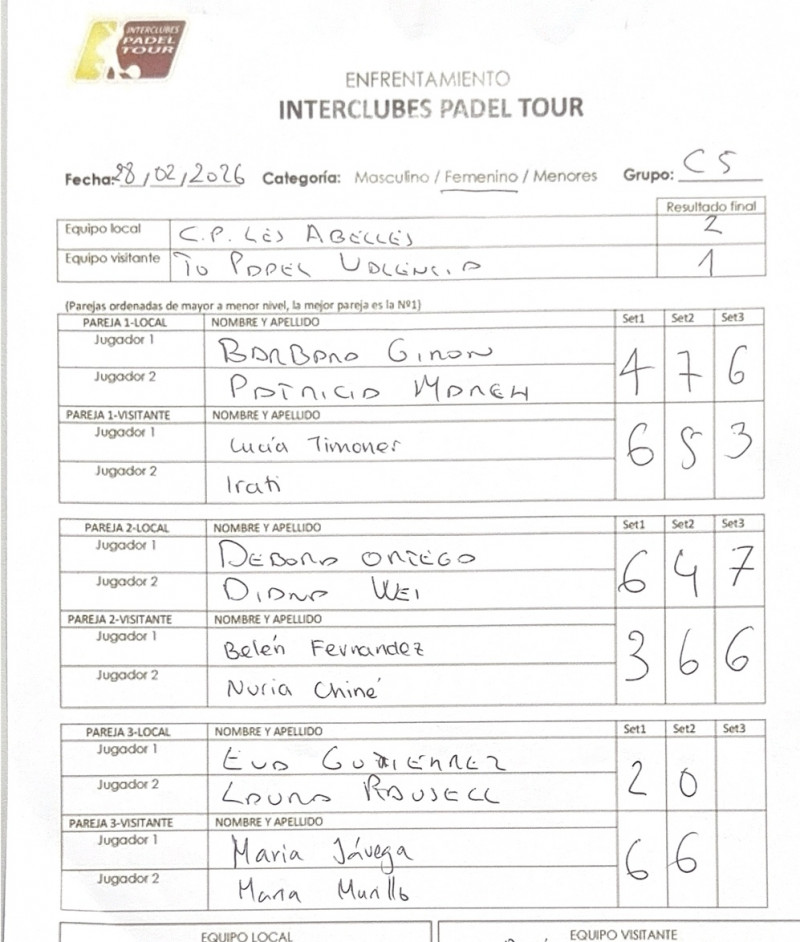 INTERCLUBES
PADEL
TOUR
ENFRENTAMIENTO
INTERCLUBES PADEL TOUR
Fecha: 28/02/2026 Categoría: Masculino / Femenino / Menores Grupo: C5
Resultado final
Equipo local C.P. LES ABELLES 2
Equipo visitante TU PADEL VALENCIA 1
(Parejas ordenadas de mayor a menor nivel, la mejor pareja es la Nº1)
PAREJA 1-LOCAL NOMBRE Y APELLIDO Set1 Set2 Set3
Jugador 1 BARBARA GIRON
4 7 6
Jugador 2 PATRICIA
PAREJA 1-VISITANTE NOMBRE Y APELLIDO
Jugador 1 Lucía Timoner
6 5 3
Jugador 2 Irati
PAREJA 2-LOCAL NOMBRE Y APELLIDO Set1 Set2 Set3
Jugador 1 DEBORA ORTEGO
6 4 7
Jugador 2 DIANA WEI
PAREJA 2-VISITANTE NOMBRE Y APELLIDO
Jugador 1 Belén Fernandez
3 6 6
Jugador 2 Nuria Chiné
PAREJA 3-LOCAL NOMBRE Y APELLIDO Set1 Set2 Set3
Jugador 1 EVA GUTIERREZ
2 0
Jugador 2 LAURA RAUSELL
PAREJA 3-VISITANTE NOMBRE Y APELLIDO
Jugador 1 Maria Jávega
6 6
Jugador 2 Maria Murillo
EQUIPO LOCAL EQUIPO VISITANTE